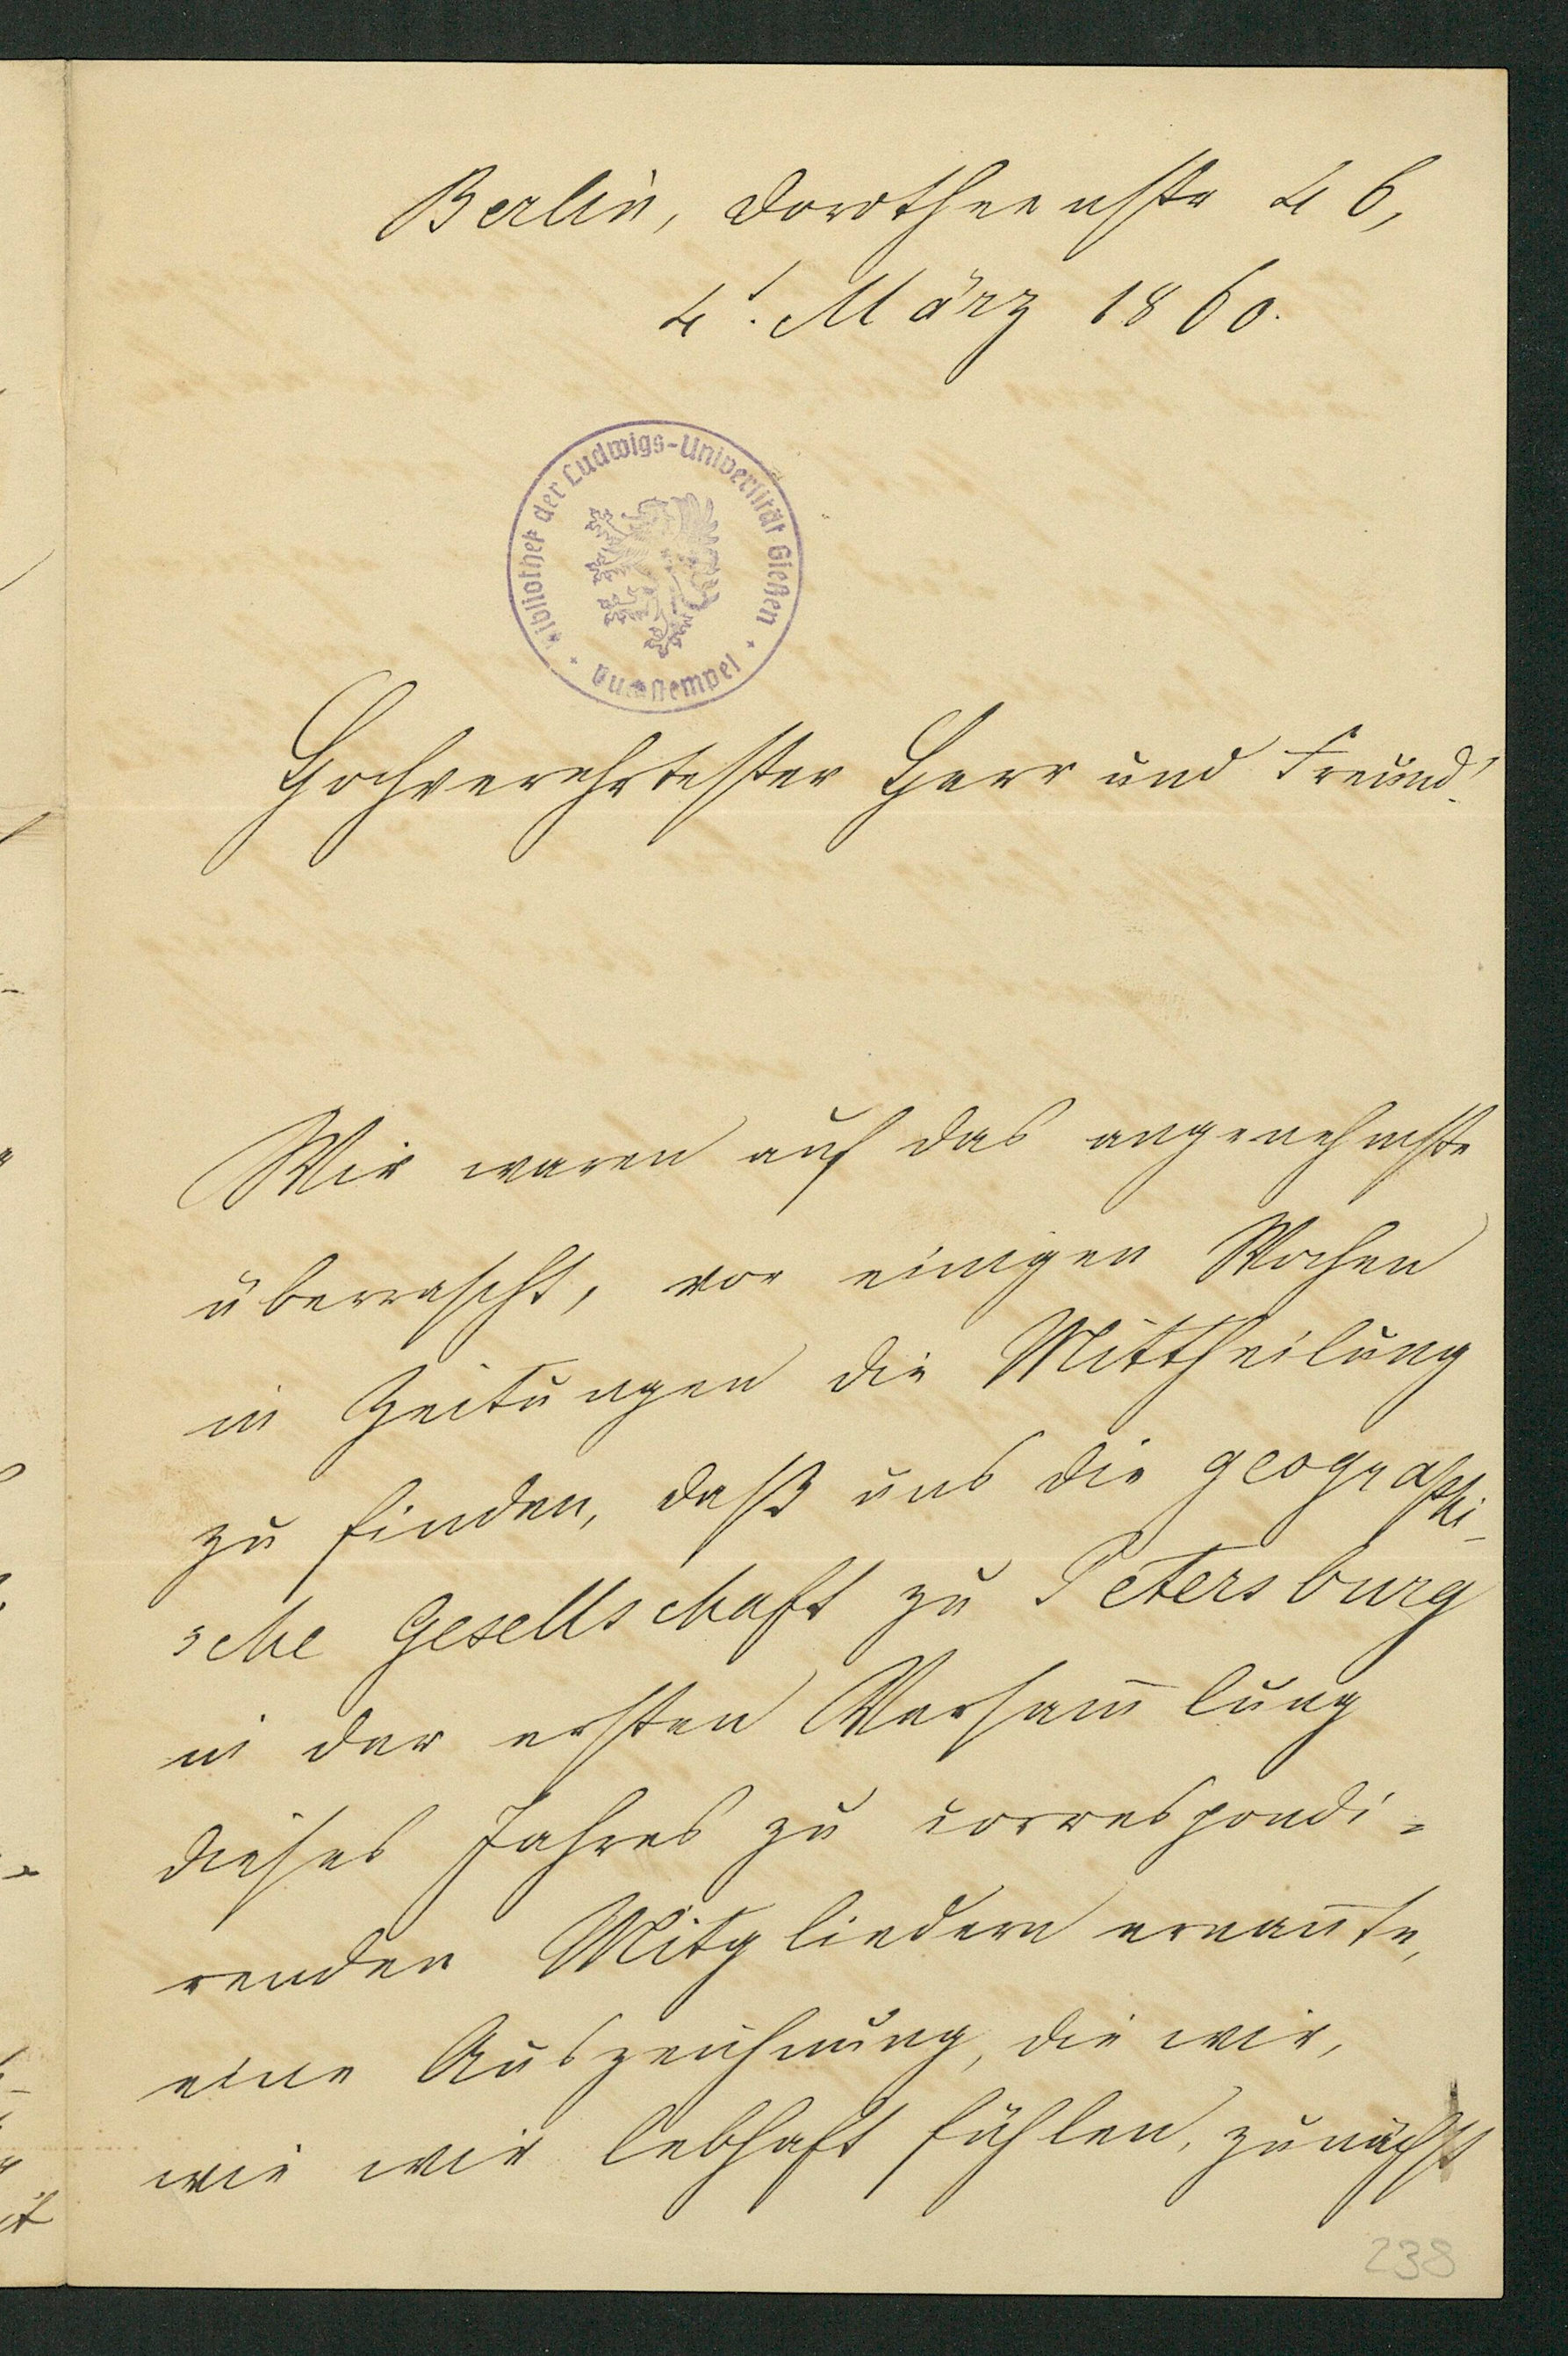 Berlin, Dorotheenstr 46,
4t. März 1860.
Bibliothek der Ludwigs-Universität Gießen
Buchstempel
Hochverehrtester Herr und Freund!
Wir waren auf das angenehmste
überrascht, vor einigen Wochen
in Zeitungen die Mittheilung
zu finden, daß uns die geographi-
sche Gesellschaft zu Petersburg
in der ersten Versam̄lung
dieses Jahres zu correspondi=
renden Mitgliedern ernan̄te,
eine Auszeichnung, die wir,
wie wir lebhaft fühlen, zunächst
238